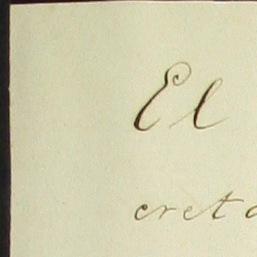 El
creta